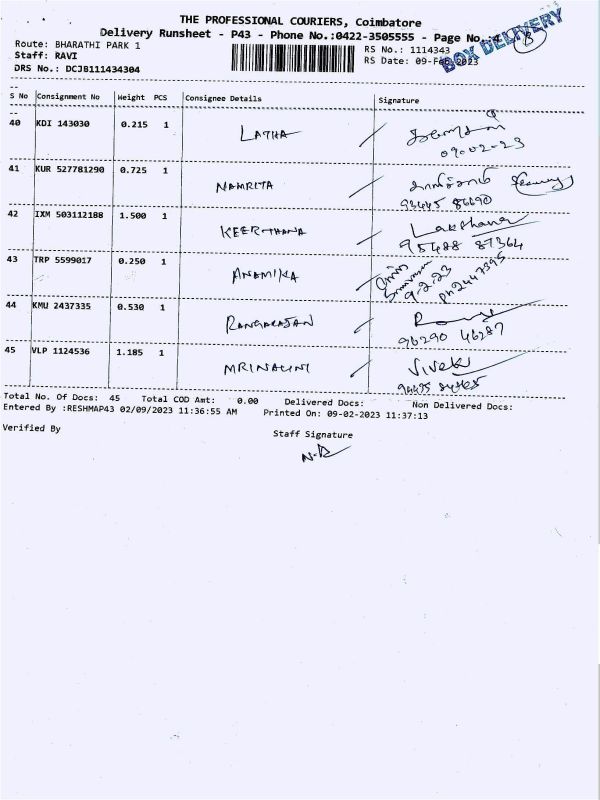 THE PROFESSIONAL COURIERS, Coimbatore
Delivery Runsheet - P43 - Phone No.:0422-3505555 - Page No.:
BOX DELIVERY
Route: BHARATHI PARK 1
RS No.: 1114343
Staff: RAVI
RS Date: 09-Feb-2023
DRS No.: DCJB111434304
S No Consignment No Weight PCS Consignee Details Signature
40 KDI 143030 0.215 1 LATHA
09-02-23
41 KUR 527781290 0.725 1 NAMRITA
93445 86690
42 IXM 503112188 1.500 1 KEERTHANA Lakshana
95488 87364
43 TRP 5599017 0.250 1 ANAMIKA
9-2-23 Ph 2447395
44 KMU 2437335 0.530 1 RANGARAJAN
96290 46287
45 VLP 1124536 1.185 1 MRINALINI Vivek
Total No. Of Docs: 45 Total COD Amt: 0.00 Delivered Docs: Non Delivered Docs:
Entered By :RESHMAP43 02/09/2023 11:36:55 AM Printed On: 09-02-2023 11:37:13
Verified By Staff Signature
N.R